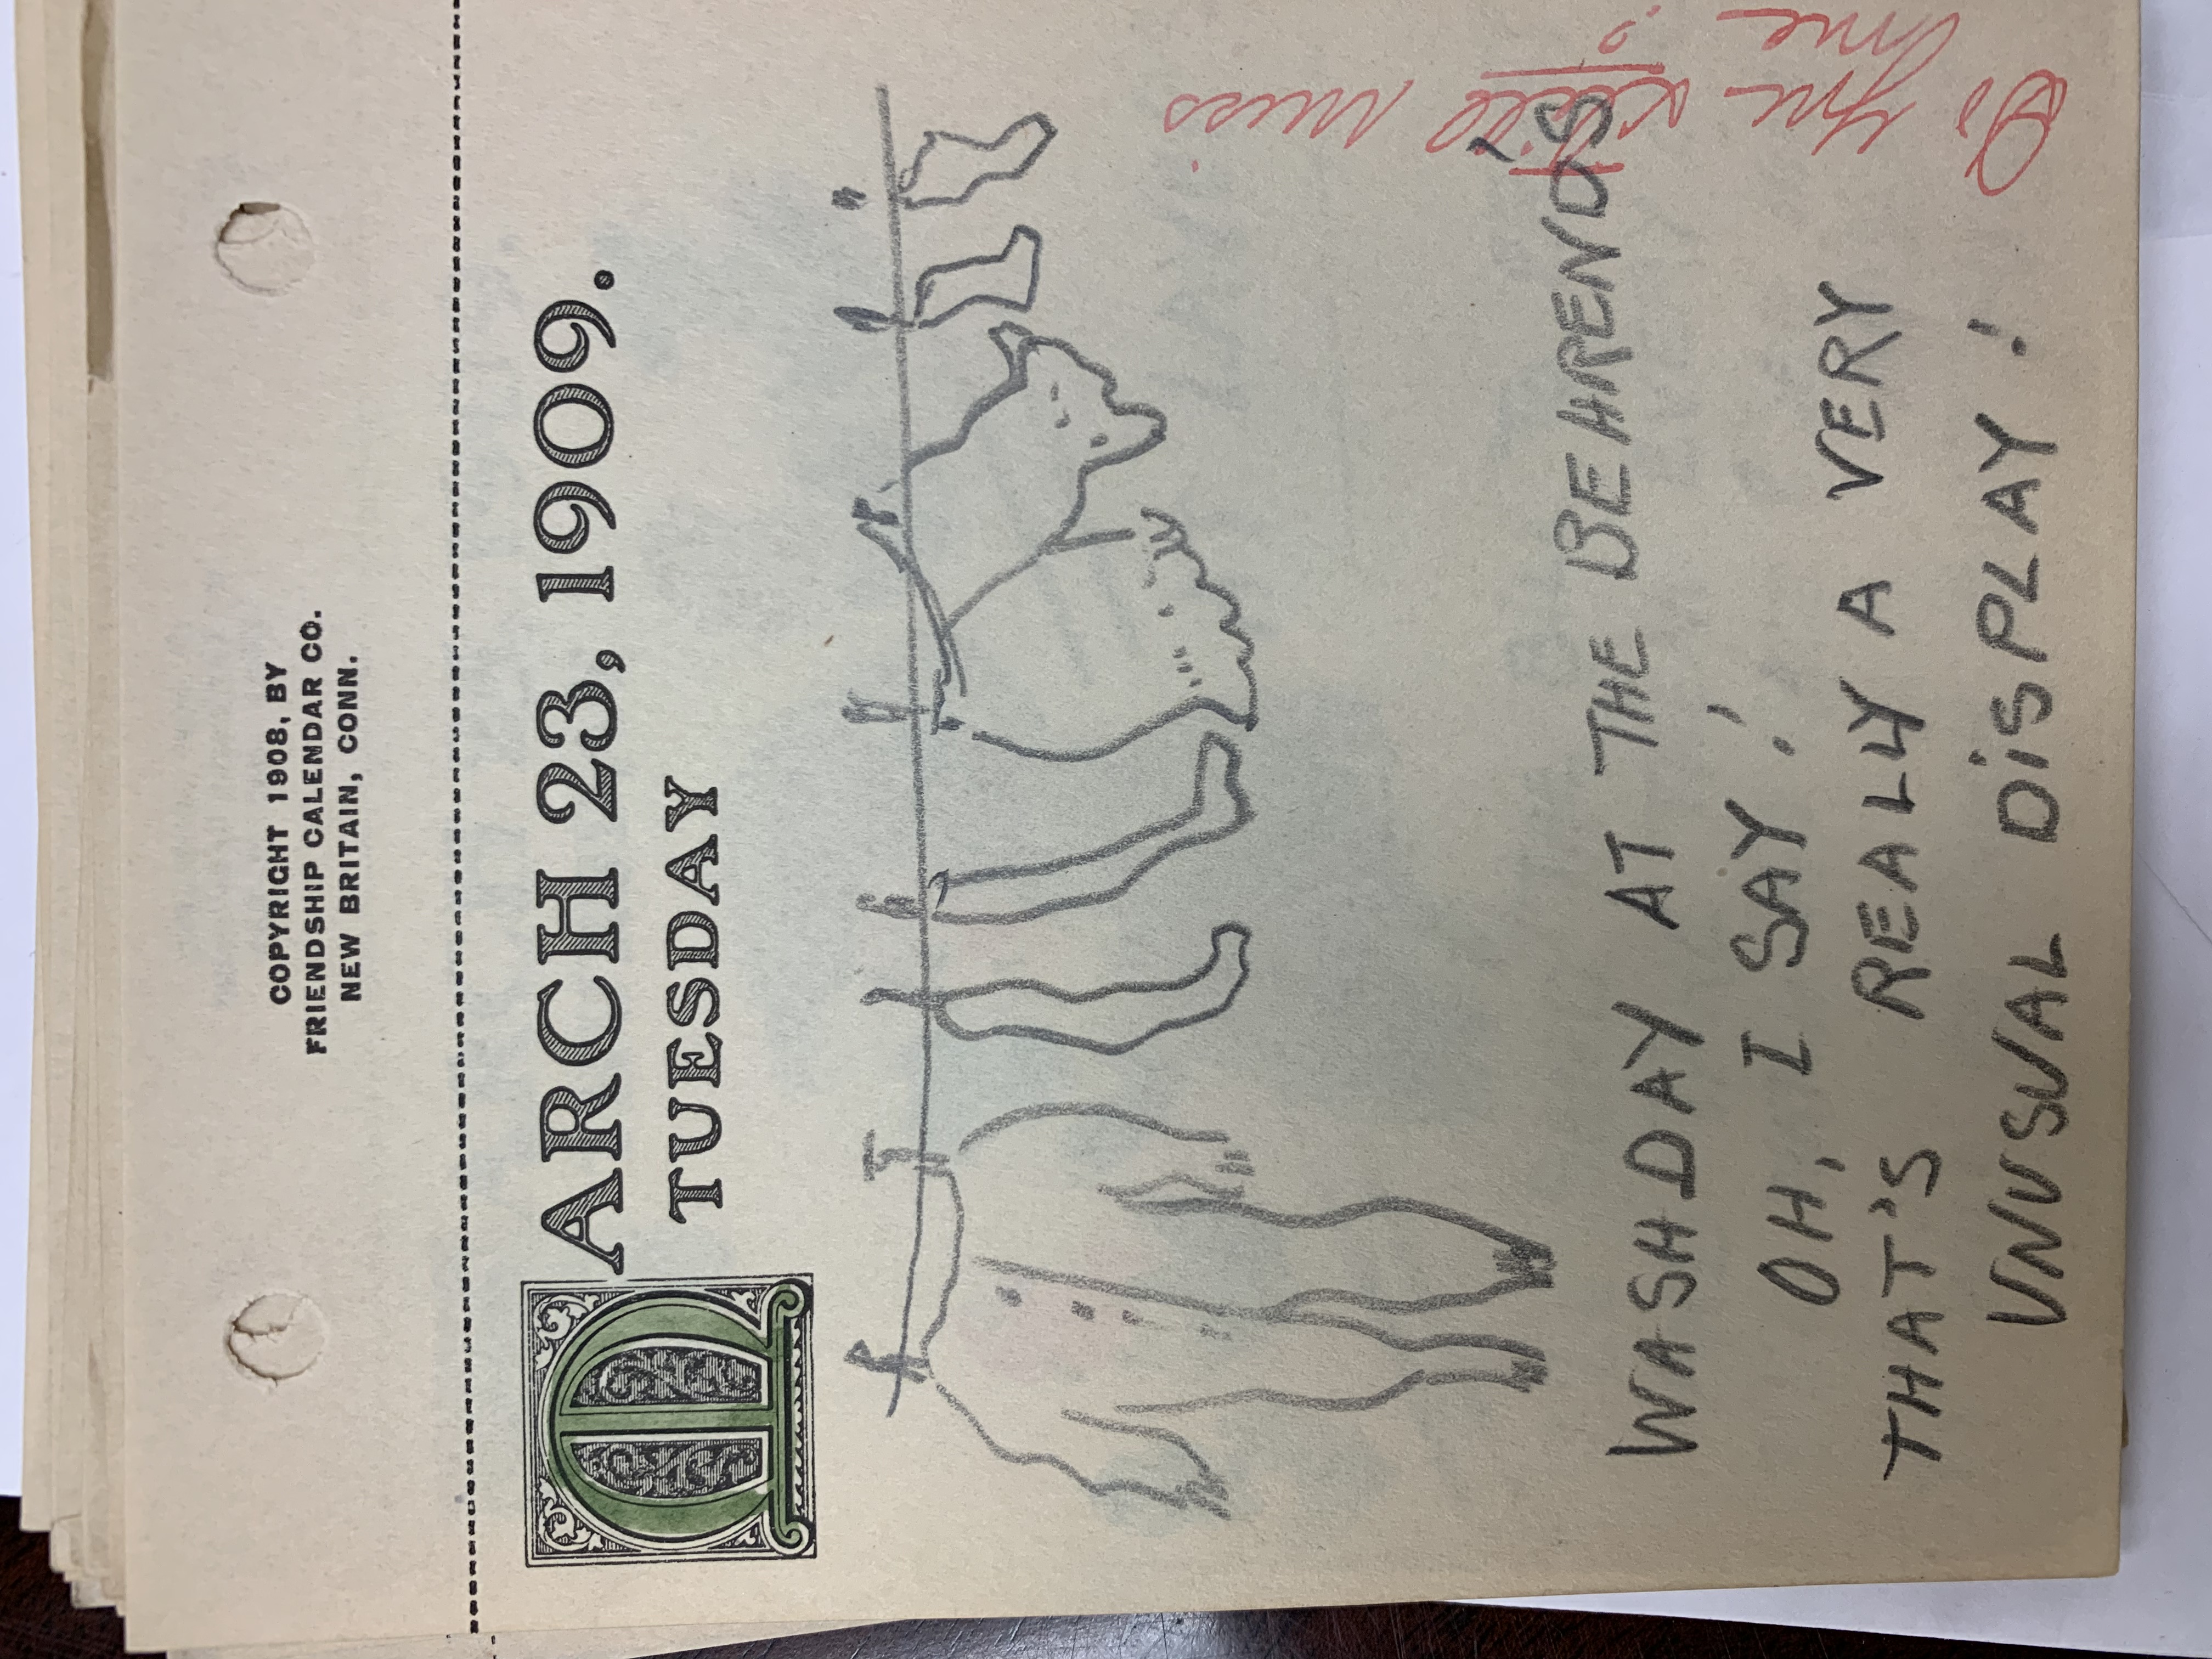 COPYRIGHT 1908, BY
FRIENDSHIP CALENDAR CO.
NEW BRITAIN, CONN.
MARCH 23, 1909.
TUESDAY
WASHDAY AT THE BEHREND'S
OH, I SAY!
THAT'S REALLY A VERY
UNUSUAL DISPLAY!
Do you still miss
me?